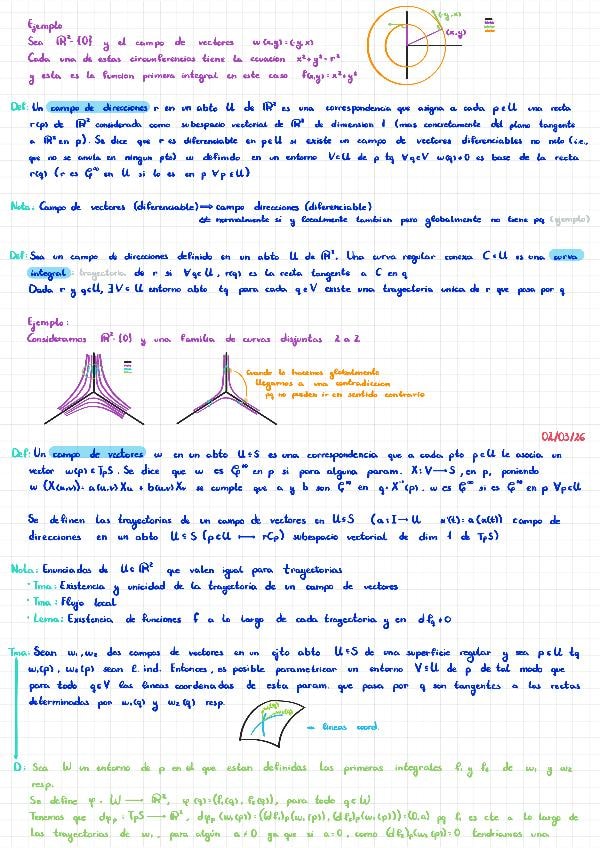 Ejemplo
Sea ℝ²-{0} y el campo de vectores w(x,y)=(-y,x)
Cada una de estas circunferencias tiene la ecuacion x²+y²=r²
y esta es la funcion primera integral en este caso f(x,y)=x²+y²
(-y,x)
(x,y)
Def: Un campo de direcciones r en un abto U de ℝ² es una correspondencia que asigna a cada p∈U una recta
r(p) de ℝ² considerada como subespacio vectorial de ℝ² de dimension 1 (mas concretamente del plano tangente
a ℝ² en p). Se dice que r es diferenciable en p∈U si existe un campo de vectores diferenciables no nulo (i.e.,
que no se anula en ningun pto) w definido en un entorno V⊂U de p tq ∀q∈V w(q)≠0 es base de la recta
r(q) (r es C^∞ en U si lo es en p ∀p∈U)
Nota: Campo de vectores (diferenciable) ⟹ campo direcciones (diferenciable)
normalmente si y localmente tambien pero globalmente no tiene pq (ejemplo)
Def: Sea un campo de direcciones definido en un abto U de ℝ². Una curva regular conexa C⊂U es una curva
integral: trayectoria de r si ∀q∈U, r(q) es la recta tangente a C en q
Dada r y q∈U, ∃V⊂U entorno abto tq para cada q∈V existe una trayectoria unica de r que pasa por q
Ejemplo:
Consideramos ℝ²-{0} y una familia de curvas disjuntas 2 a 2
Cuando lo hacemos globalmente
llegamos a una contradiccion
pq no pueden ir en sentido contrario
02/03/26
Def: Un campo de vectores w en un abto U⊂S es una correspondencia que a cada pto p∈U le asocia un
vector w(p)∈TpS. Se dice que w es C^∞ en p si para algun param. X:V→S, en p, poniendo
w(X(u,v))=a(u,v)Xu+b(u,v)Xv se cumple que a y b son C^∞ en q=X⁻¹(p). w es C^∞ si es C^∞ en p ∀p∈U
Se definen las trayectorias de un campo de vectores en U⊂S (α:I→U α'(t)=α(α(t)) campo de
direcciones en un abto U⊂S (p∈U ⟼ r(p) subespacio vectorial de dim 1 de TpS)
Nota: Enunciados de U⊂ℝ² que valen igual para trayectorias
· Tma: Existencia y unicidad de la trayectoria de un campo de vectores
· Tma: Flujo local
· Lema: Existencia de funciones f a lo largo de cada trayectoria y en dfq≠0
Tma: Sean w₁,w₂ dos campos de vectores en un cjto abto U⊂S de una superficie regular y sea p∈U tq
w₁(p), w₂(p) sean l. ind. Entonces, es posible parametrizar un entorno V⊂U de p de tal modo que
para todo q∈V las lineas coordenadas de esta param. que pasa por q son tangentes a las rectas
determinadas por w₁(q) y w₂(q) resp.
→ lineas coord.
D: Sea W un entorno de p en el que estan definidas las primeras integrales f₁ y f₂ de w₁ y w₂
resp.
Se define φ: W → ℝ², φ(q)=(f₁(q), f₂(q)), para todo q∈W
Tenemos que dφp: TpS → ℝ², dφp(w₁(p))=((df₁)p(w₁(p)), (df₂)p(w₁(p)))=(0,a) pq f₁ es cte a lo largo de
las trayectorias de w₁, para algún a≠0 ya que si a=0, como (df₂)p(w₂(p))=0 tendriamos una